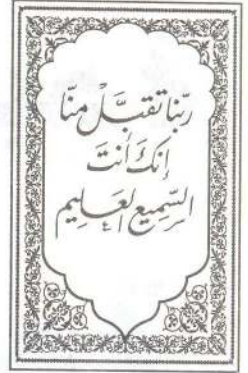 ربنا تقبَّلْ منّا
إنكَ أنتَ
السّميع العليم